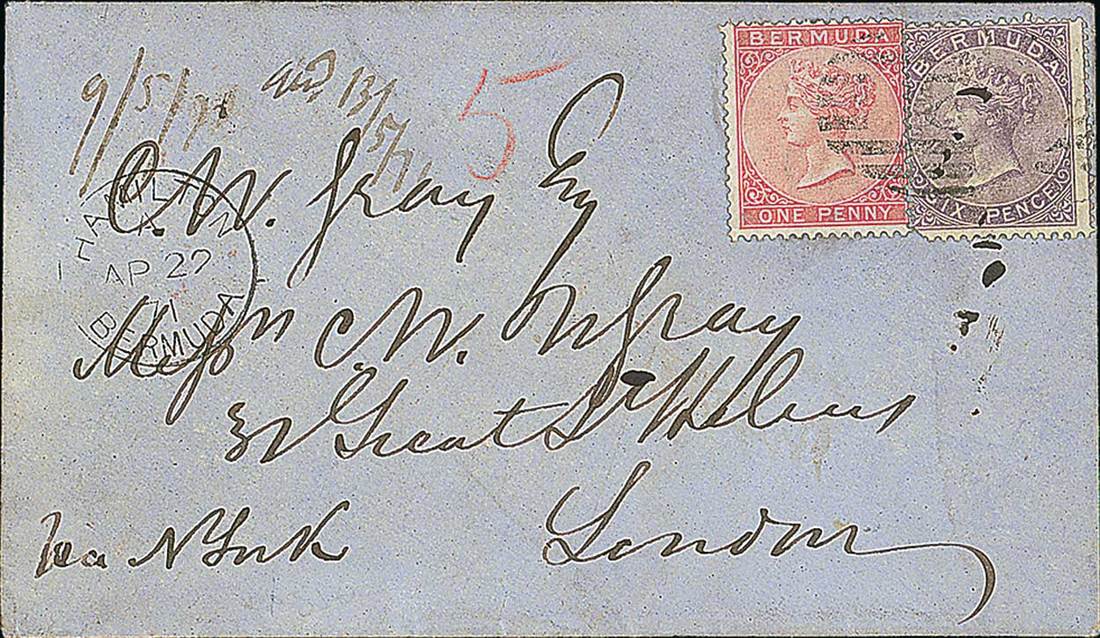 BERMUDA
ONE PENNY
BERMUDA
SIX PENCE
9/5/71
13/5/71
5
HAMILTON
A
AP 27
71
BERMUDA
C. W. Gray Esq
Messrs C. W. Gray
32 Great St Helens
London
Via N York